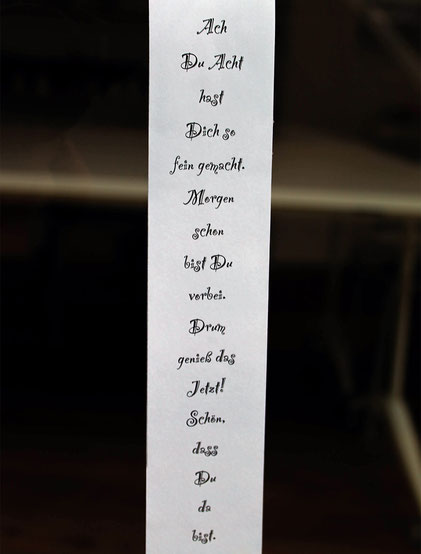 Ach
Du Acht
hast
Dich so
fein gemacht.
Morgen
schon
bist Du
vorbei.
Drum
genieß das
Jetzt!
Schön,
dass
Du
da
bist.